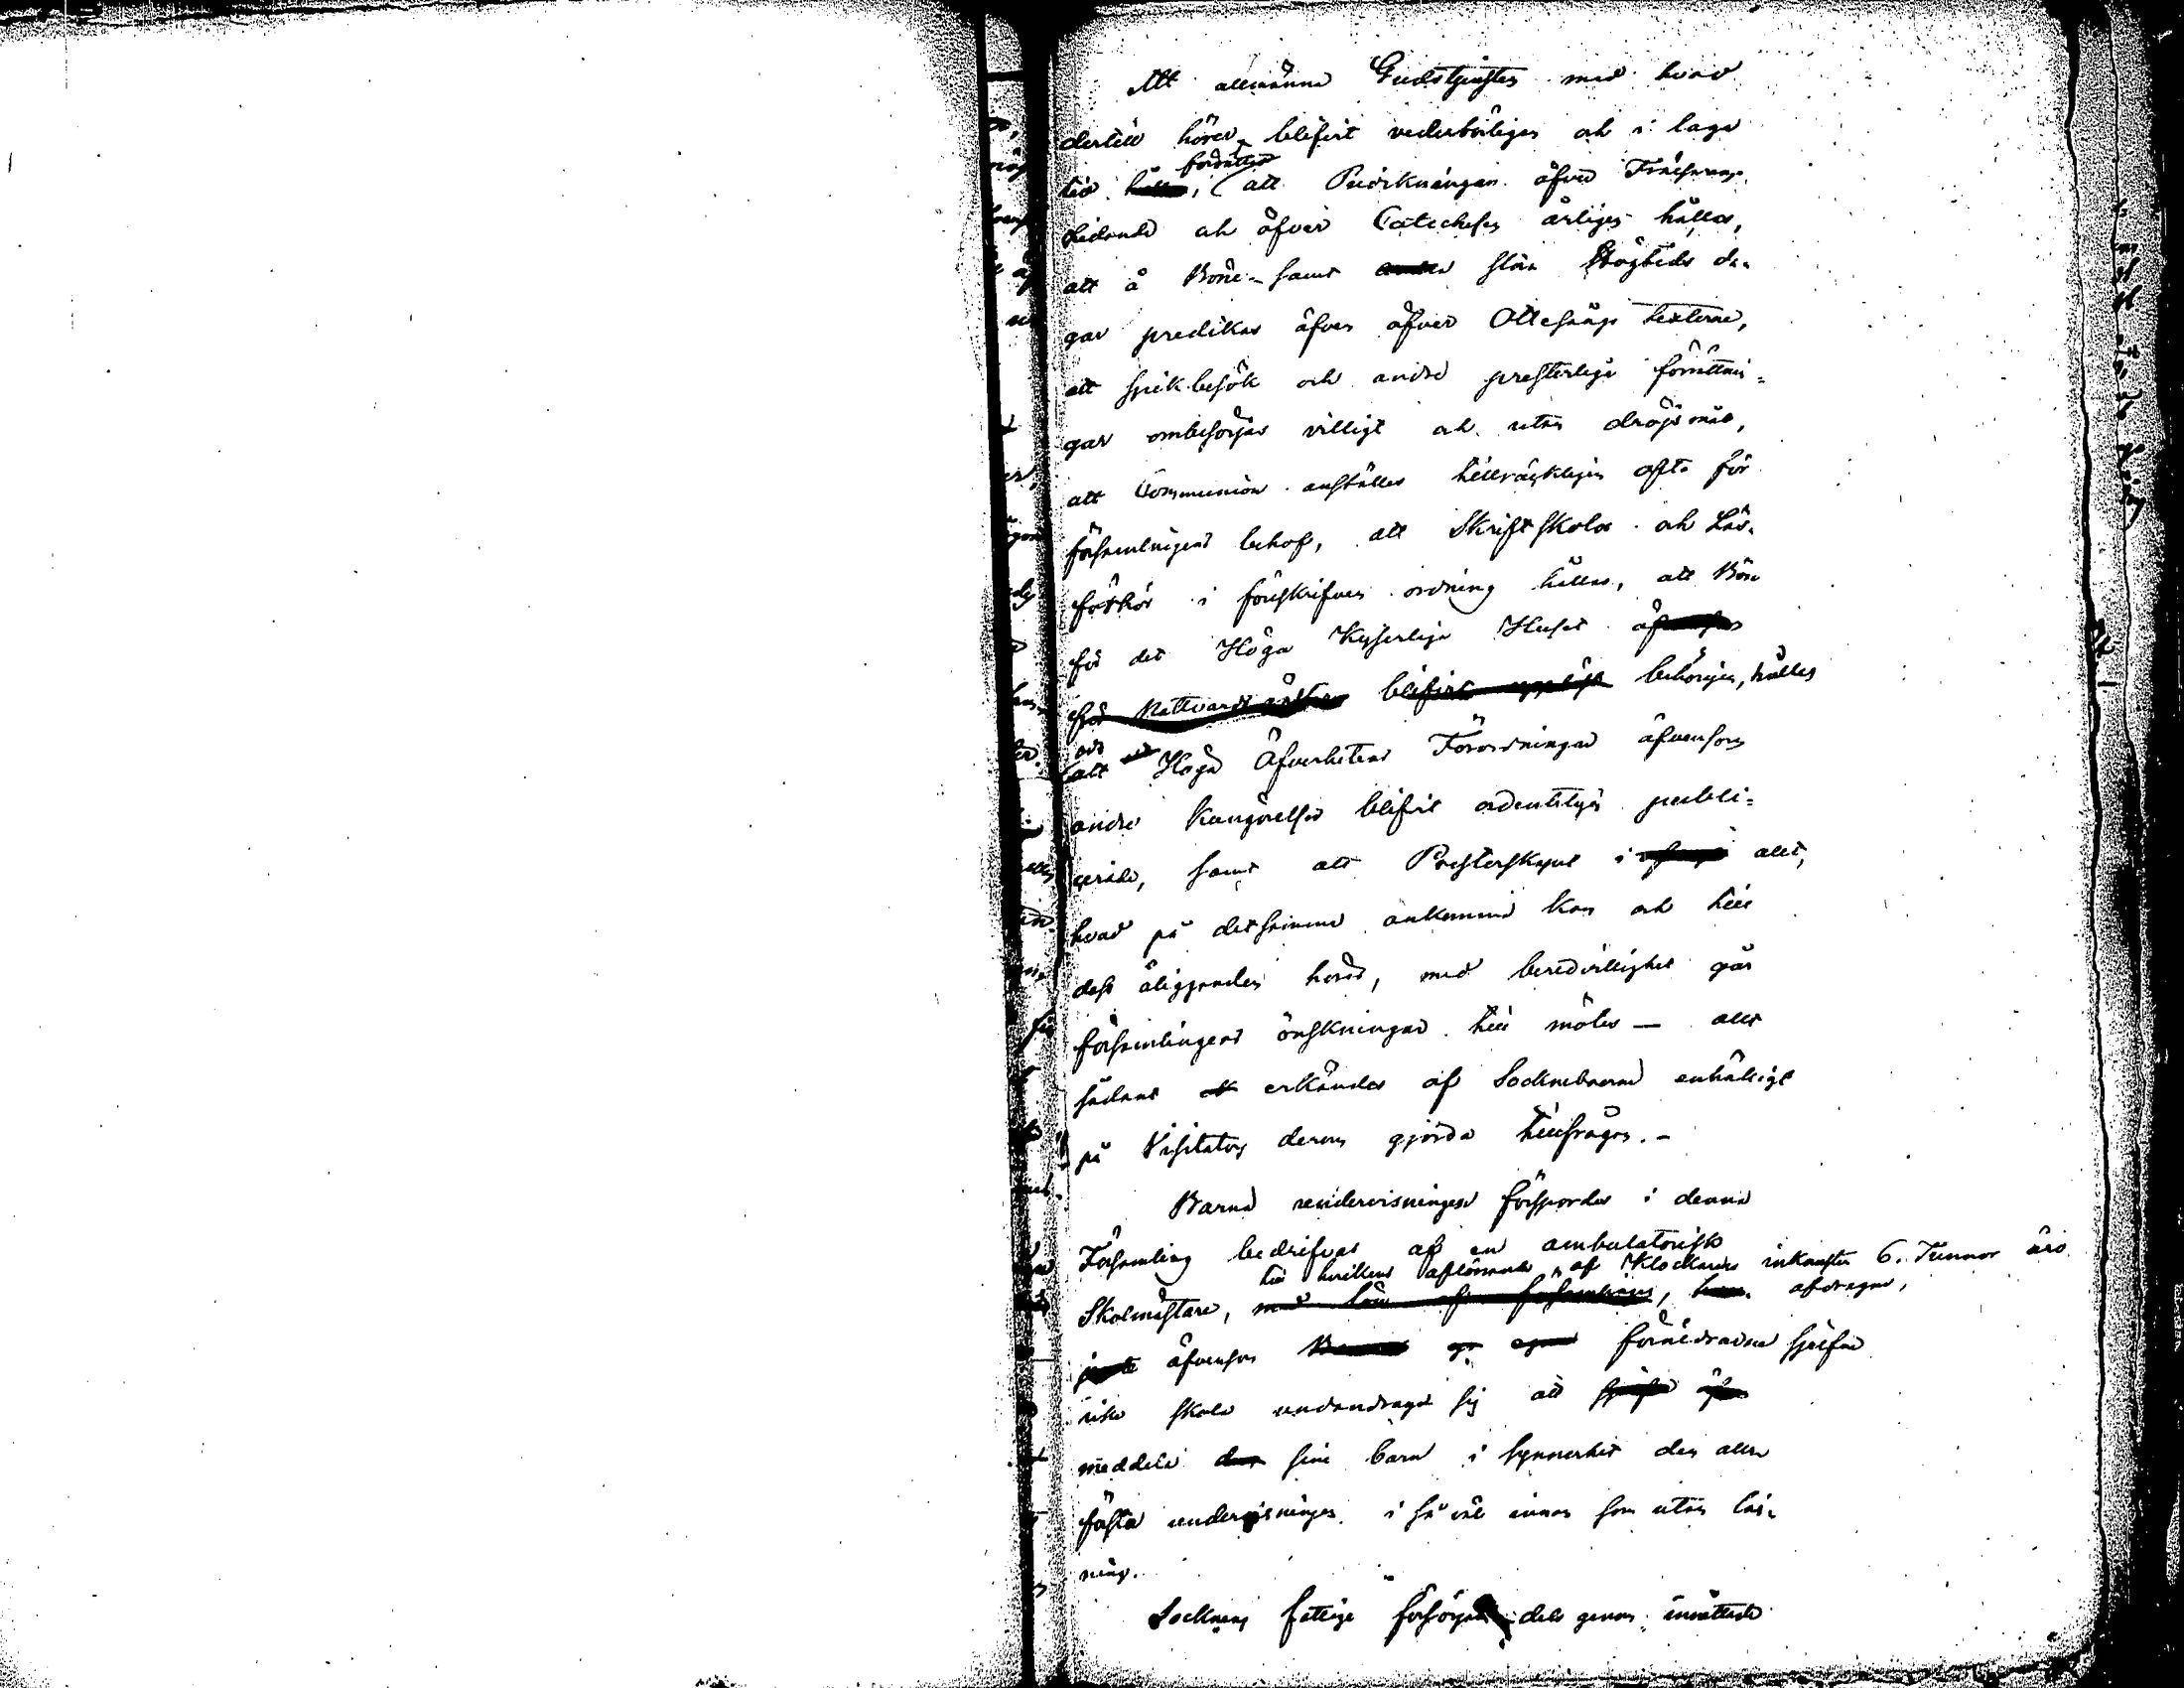 Att allmänna Gudstjensten med hvad
dertill hörer, blifvit vederbörligen och i laga
tid förrättad, att Predikningar öfver Frälsarens
Lidande och öfver Catechesen årligen hållas,
att å Böne- samt stora Högtids da-
gar predikas äfven öfver Ottesångs texterne,
att sjukbesök och andra presterliga förrättnin-
gar ombesörjas villigt och utan dröjsmål,
att Communion anställes tillräckligen ofta för
församlingens behof, att Skriftskolor och Läs-
förhör i föreskrifven ordning hållas, att Bön
för det Höga Kejserliga Huset
för Nattvardsgästerne blifvit upplyst behörigen, hålles
att Höga Öfverhetens Förordningar äfvensom
andra Kungörelser blifvit ordentligen publi-
cerade, samt att Presterskapet i allt,
hvad på detsamma ankomma kan och till
dess åligganden hörer, med beredvillighet går
församlingens önskningar till mötes — allt
sådant erkändes af Sockneboerne enhälligt
på Visitators derom gjorda tillfrågan. -
Barna undervisningen förspordes i denna
Församling bedrifvas af en ambulatorisk
till hvilkens aflönande af Klockarens inkomster 6. Tunnor äro
Skolmästare, med lön af församlingen, afdragne,
äfvensom föräldrarne sjelfve
icke skola undandraga sig att
meddela sine barn i synnerhet den allra
första undervisningen i så väl innan som utan läs-
ning.
Socknens fattige försörjas dels genom inrättade